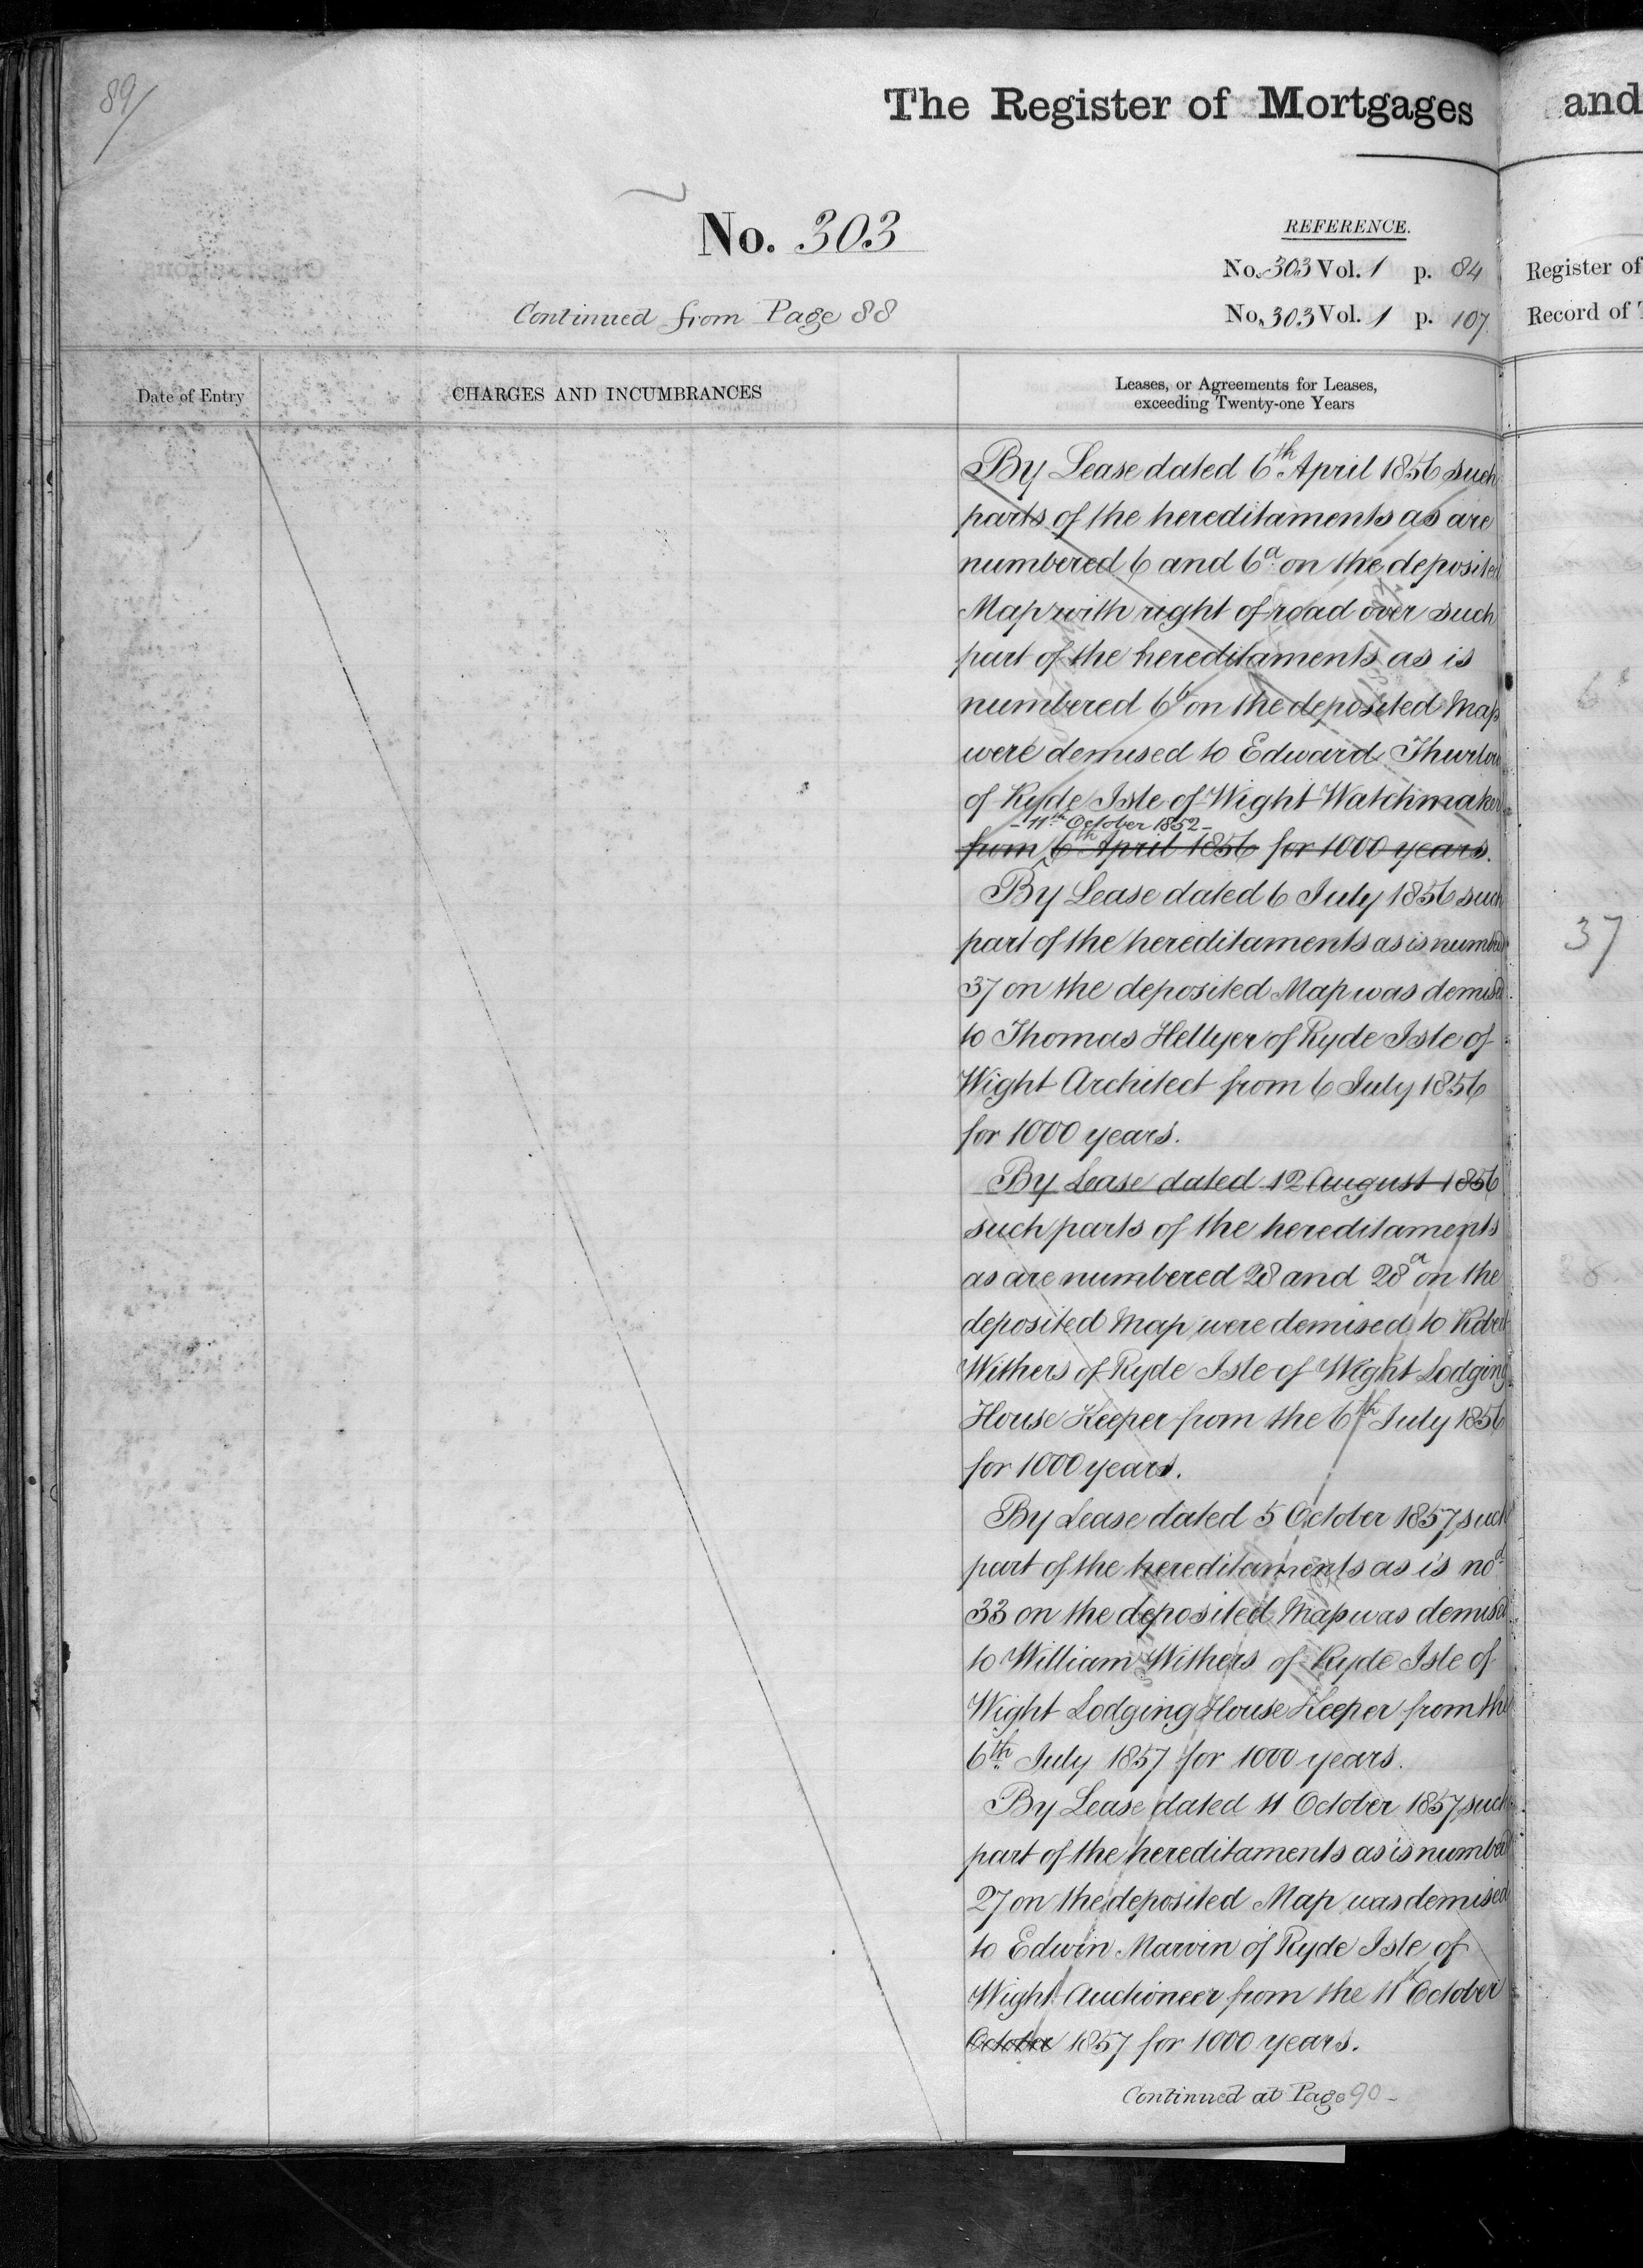 89/
The Register of Mortgages
and
No. 303
REFERENCE.
No. 303 Vol. 1 p. 84
Register of
Continued from Page 88
No. 303 Vol. 1 p. 107
Record of
Date of Entry
CHARGES AND INCUMBRANCES
Leases, or Agreements for Leases,
exceeding Twenty-one Years
By Lease dated 6th April 1856 such
parts of the hereditaments as are
numbered 6 and 6a on the deposited
Map with right of road over such
part of the hereditaments as is
numbered 6b on the deposited Map
were demised to Edward Thurlow
of Ryde Isle of Wight Watchmaker
- 11th October 1852 -
from 6th April 1856 for 1000 years.
By Lease dated 6 July 1856 such
part of the hereditaments as is numbered
37
37 on the deposited Map was demised
to Thomas Hellyer of Ryde Isle of
Wight Architect from 6 July 1856
for 1000 years.
By Lease dated 12 August 1856
such parts of the hereditaments
as are numbered 28 and 28a on the
deposited Map were demised to Robert
Withers of Ryde Isle of Wight Lodging
House Keeper from the 6th July 1856
for 1000 years.
By Lease dated 5 October 1857 such
part of the hereditaments as is nod
33 on the deposited Map was demised
to William Withers of Ryde Isle of
Wight Lodging House Keeper from the
6th July 1857 for 1000 years.
By Lease dated 11 October 1857 such
part of the hereditaments as is numbered
27 on the deposited Map was demised
to Edwin Marvin of Ryde Isle of
Wight Auctioneer from the 11th October
October 1857 for 1000 years.
Continued at Page 90 -